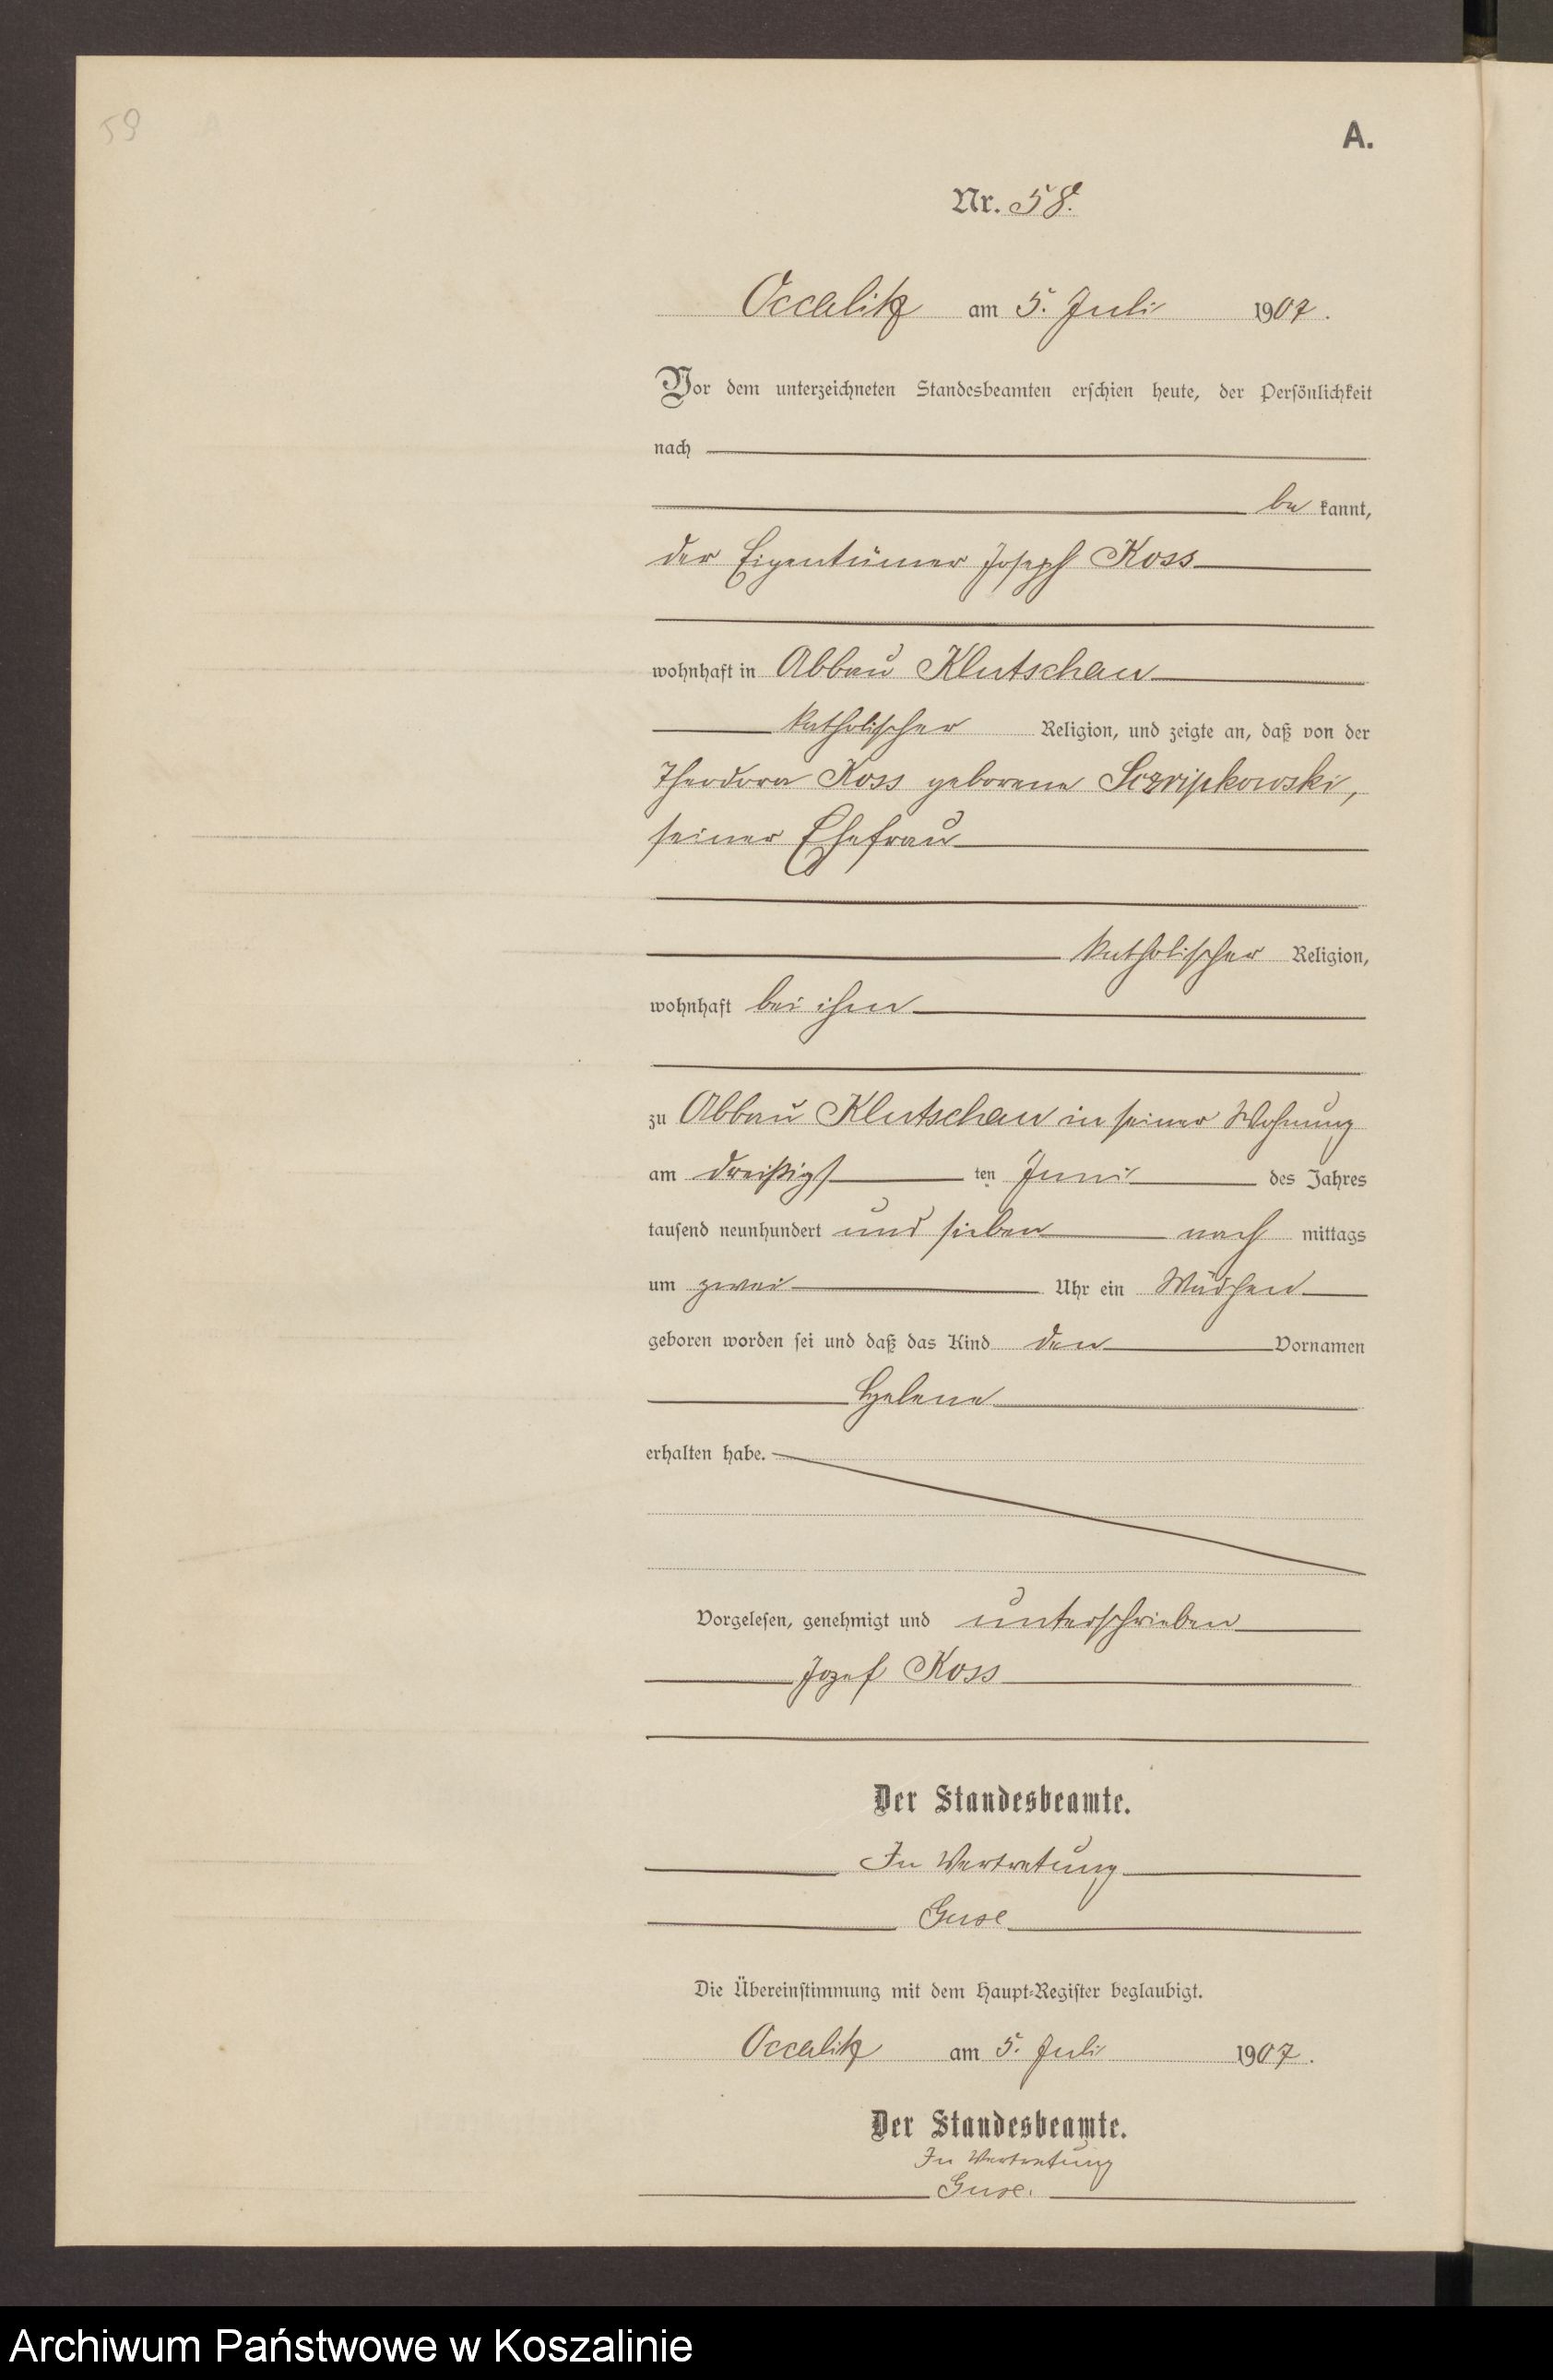 59
A.
Nr. 58.
Occalitz am 5. Juli 1907.
Vor dem unterzeichneten Standesbeamten erschien heute, der Persönlichkeit
nach
be kannt,
der Eigentümer Joseph Koss
wohnhaft in Abbau Klutschau
katholischer Religion, und zeigte an, daß von der
Theodora Koss geborene Sczripkowski,
seiner Ehefrau
katholischer Religion,
wohnhaft bei ihm
zu Abbau Klutschau in seiner Wohnung
am dreißigs ten Juni des Jahres
tausend neunhundert und sieben nach mittags
um zwei Uhr ein Mädchen
geboren worden sei und daß das Kind den Vornamen
Helene
erhalten habe.
Vorgelesen, genehmigt und unterschrieben
Jozef Koss
Der Standesbeamte.
In Vertretung
Guse
Die Übereinstimmung mit dem Haupt-Register beglaubigt.
Occalitz am 5. Juli 1907.
Der Standesbeamte.
In Vertretung
Guse.
Archiwum Państwowe w Koszalinie